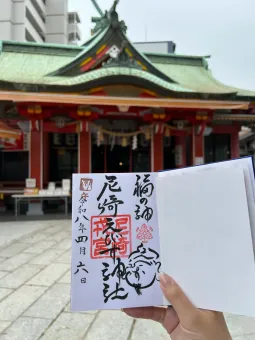 福の神
尼崎えびす神社
令和八年四月六日